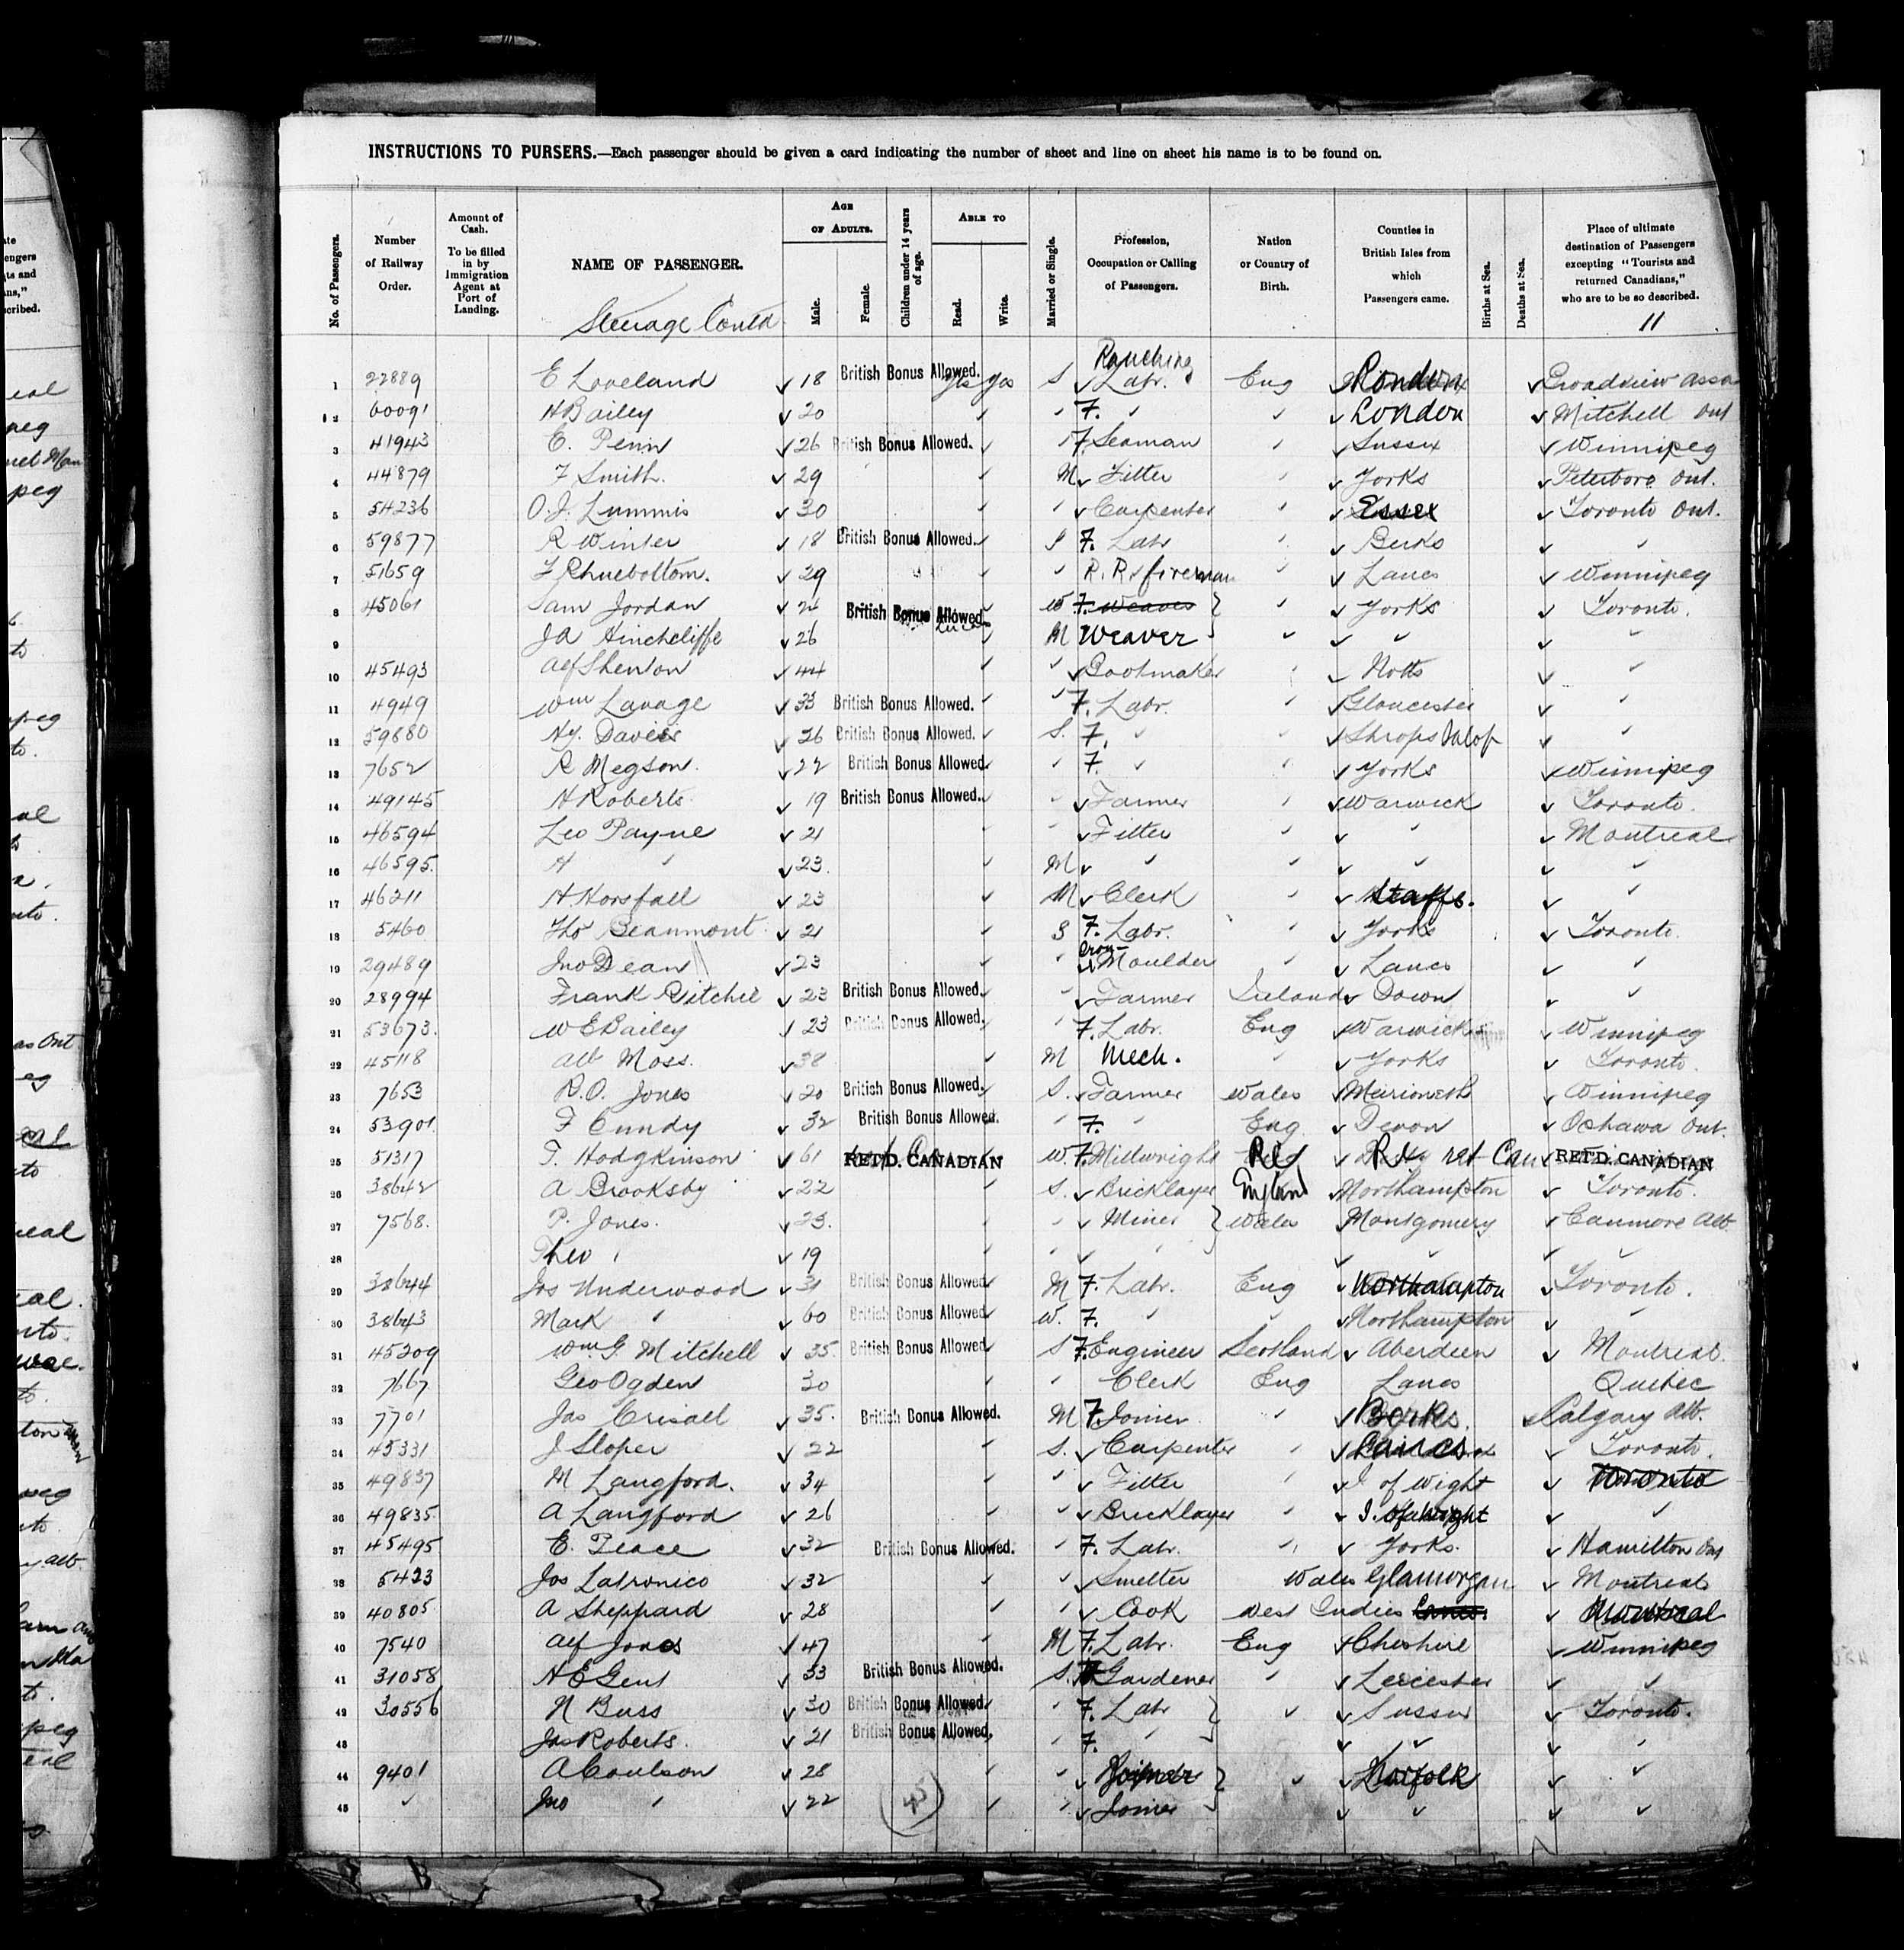 INSTRUCTIONS TO PURSERS.—Each passenger should be given a card indicating the number of sheet and line on sheet his name is to be found on.
No. of Passengers. Number of Railway Order. Amount of Cash. To be filled in by Immigration Agent at Port of Landing. NAME OF PASSENGER. AGE OF ADULTS. Male. Female. Children under 14 years of age. ABLE TO Read. Write. Married or Single. Profession, Occupation or Calling of Passengers. Nation or Country of Birth. Counties in British Isles from which Passengers came. Births at Sea. Deaths at Sea. Place of ultimate destination of Passengers excepting "Tourists and returned Canadians," who are to be so described.
Steerage Contd 11
1 22889 E Loveland ✓ 18 British Bonus Allowed. Yes Yes S Ranching ✓ Labr. Eng London ✓ Broadview Assa
2 60091 H Bailey ✓ 20 ✓ " F. " " London ✓ Mitchell Ont
3 41943 E. Penn ✓ 26 British Bonus Allowed. ✓ " F. Seaman " Sussex ✓ Winnipeg
4 44879 F Smith. ✓ 29 ✓ M ✓ Fitter " ✓ Yorks ✓ Peterboro Ont.
5 54236 O.J. Lummis ✓ 30 ✓ " ✓ Carpenter " ✓ Essex ✓ Toronto Ont.
6 59877 R Winter ✓ 18 British Bonus Allowed. ✓ S F. Labr " ✓ Berks ✓ "
7 51659 ✓ 29 ✓ " R. R. fireman " ✓ Lancs ✓ Winnipeg
8 45061 Sam Jordan ✓ British Bonus Allowed. ✓ W F. Weaver } " ✓ Yorks ✓ Toronto.
9 JA Hinchcliffe ✓ 26 ✓ M Weaver " ✓ " ✓ "
10 45493 Alf Shenton ✓ 44 ✓ " ✓ Bootmaker " ✓ Notts ✓ "
11 4949 Wm Lavage ✓ 33 British Bonus Allowed. ✓ " F. Labr. " ✓ Gloucester ✓ "
12 59880 Hy. Davies ✓ 26 British Bonus Allowed. ✓ S. F. " " ✓ Shrops Salop ✓ "
13 7652 R Megson. ✓ 22 British Bonus Allowed. ✓ " F. " " ✓ Yorks ✓ Winnipeg
14 49145 H Roberts ✓ 19 British Bonus Allowed. ✓ " ✓ Farmer " ✓ Warwick ✓ Toronto.
15 46594 Leo Payne ✓ 21 " ✓ Fitter " ✓ " ✓ Montreal
16 46595. H " ✓ 23. ✓ M ✓ " " ✓ " ✓ "
17 46211 H. Horsfall ✓ 23 ✓ M ✓ Clerk " ✓ Staffs. ✓ "
18 5460 Tho Beaumont ✓ 21 ✓ S F. Labr. " ✓ Yorks ✓ Toronto.
19 29489 Jno Dean ✓ 23 ✓ " Iron- ✓ Moulder ✓ Lancs ✓ "
20 28994 Frank Ritchie ✓ 23 British Bonus Allowed. ✓ " ✓ Farmer Ireland ✓ Down ✓ "
21 53673. W E Bailey ✓ 23 British Bonus Allowed. " F. Labr. Eng ✓ Warwick ✓ Winnipeg
22 45118 Alb Moss. ✓ 38 ✓ M Mech. " ✓ Yorks ✓ Toronto.
23 7653 R.O. Jones ✓ 20 British Bonus Allowed. ✓ S. ✓ Farmer Wales ✓ Merioneth ✓ Winnipeg
24 53901 F Cundy ✓ 32 British Bonus Allowed. " F. " Eng ✓ Devon ✓ Oshawa Ont.
25 51317 T. Hodgkinson ✓ 61 RET'D. CANADIAN W. F. Millwright ret Can ✓ RET'D. CANADIAN
26 38642 A Brooksby ✓ 22 ✓ S. ✓ Bricklayer England ✓ Northampton ✓ Toronto.
27 7568. P. Jones. ✓ 23. " ✓ Miner } Wales ✓ Montgomery ✓ Canmore Alb
28 Theo " ✓ 19 ✓ " ✓ " ✓ " ✓ "
29 38644 Jos Underwood ✓ 31 British Bonus Allowed. M F. Labr. Eng ✓ Northampton ✓ Toronto.
30 38643 Mark " ✓ 60 British Bonus Allowed. W. F. " " ✓ Northampton ✓ "
31 45209 Wm G Mitchell ✓ 35. British Bonus Allowed. S F. Engineer Scotland ✓ Aberdeen ✓ Montreal.
32 7667 Geo Ogden 30 ✓ " Clerk Eng Lancs Quebec
33 7701 Jas Crisall ✓ 35. British Bonus Allowed. M F. Joiner " ✓ Berks. ✓ Calgary Alb.
34 45331 J Sloper ✓ 22 ✓ S. ✓ Carpenter " ✓ Lancs ✓ Toronto.
35 49837 M Langford. ✓ 34 ✓ " ✓ Fitter " ✓ I of Wight ✓ Toronto
36 49835. A Langford ✓ 26 ✓ " ✓ Bricklayer " ✓ I. of Wight ✓ "
37 45495 E. Peace ✓ 32 British Bonus Allowed. " F. Labr. " ✓ Yorks. ✓ Hamilton Ont
38 5423 Jos Latronico ✓ 32 ✓ " ✓ Smelter Wales Glamorgan ✓ Montreal
39 40805. A Sheppard ✓ 28 ✓ " ✓ Cook West Indies ✓ Montreal
40 7540 Alf Jones ✓ 47 ✓ M F. Labr. Eng ✓ Cheshire ✓ Winnipeg
41 31058 H E Gent ✓ 33 British Bonus Allowed. S. Gardener " ✓ Leicester ✓ "
42 30556 N Buss ✓ 30 British Bonus Allowed. ✓ " F. Labr } " ✓ Sussex ✓ Toronto.
43 Jas Roberts. ✓ 21 British Bonus Allowed. " F. " ✓ " ✓ "
44 9401 A Coulson ✓ 28 ✓ " ✓ Joiner } " ✓ Norfolk ✓ "
45 " Jno " ✓ 22 45 ✓ " ✓ Joiner ✓ " ✓ "